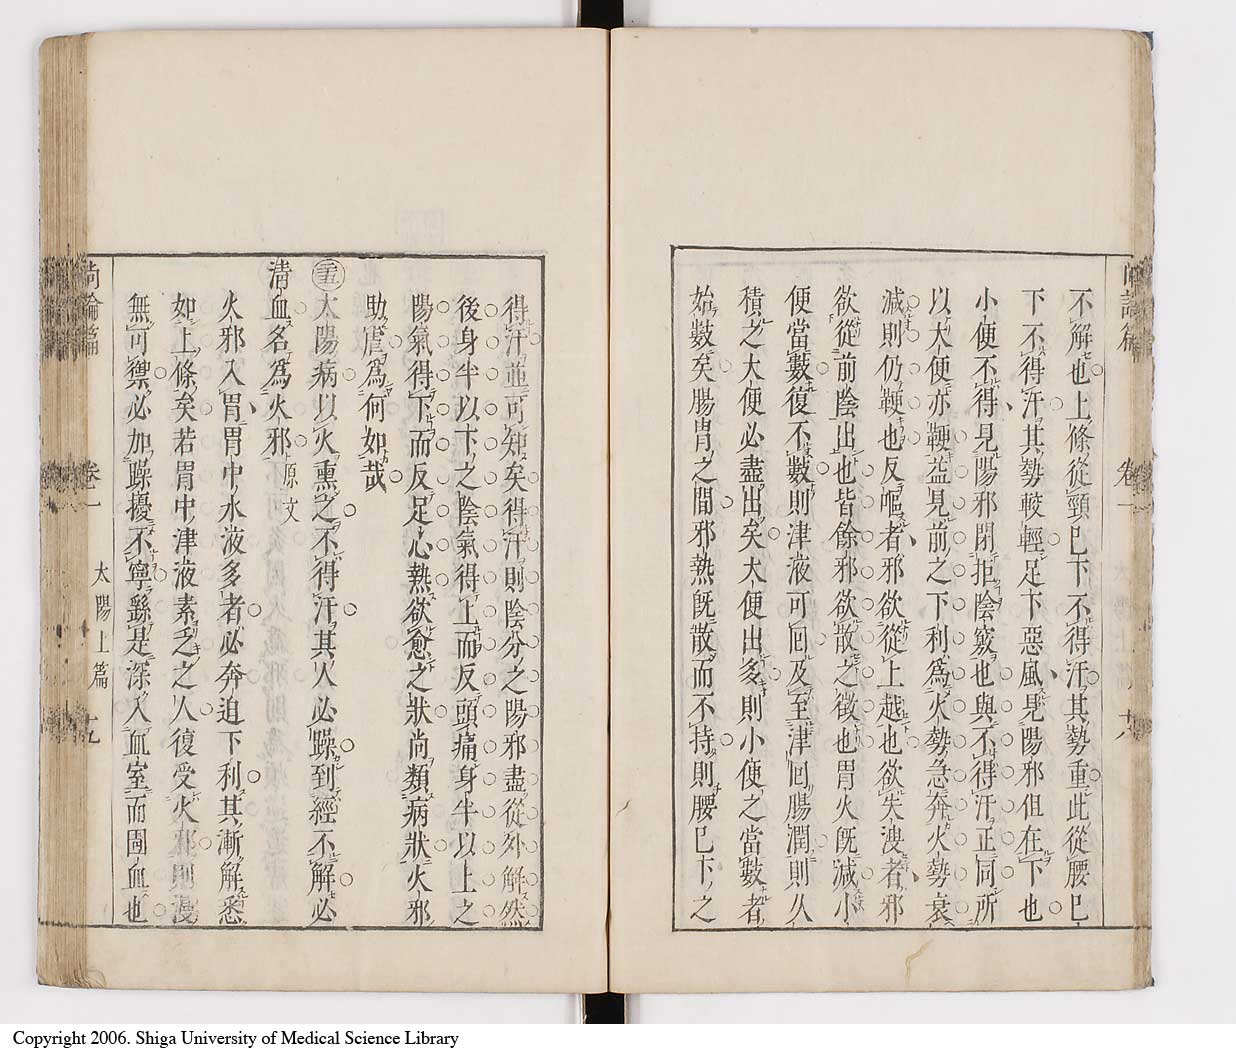 尚論篇
卷一
十八
不解也上條從頸已下不得汗其勢重此從腰已
下不得汗其勢較輕足下惡風見陽邪但在下也
小便不得見陽邪閉拒陰竅也與不得汗正同所
以大便亦鞕益見前之下利爲火勢急奔火勢衰
減則仍鞕也反嘔者邪欲從上越也欲失溲者邪
欲從前陰出也皆餘邪欲散之徵也胃火旣減小
便當數復不數則津液可回及至津回腸潤則久
積之大便必盡出矣大便出多則小便之當數者
始數矣腸胃之間邪熱旣散而不持則腰已下之
得汗並可知矣得汗則陰分之陽邪盡從外解然
後身半以下之陰氣得上而反頭痛身半以上之
陽氣得下而反足心熱欲愈之狀尚類病狀火邪
助虐爲何如哉
二十五 太陽病以火熏之不得汗其人必躁到經不解必
淸血名爲火邪 原文
火邪入胃胃中水液多者必奔迫下利其漸解悉
如上條矣若胃中津液素乏之人復受火邪則漫
無可禦必加躁擾不寧繇是深入血室而圊血也
尚論篇
卷一
太陽上篇
十九
Copyright 2006. Shiga University of Medical Science Library